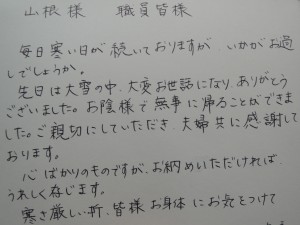 山根様 職員皆様
毎日寒い日が続いておりますが いかがお過
しでしょうか。
先日は大雪の中、大変お世話になり、ありがとう
ございました。お陰様で無事に帰ることができま
した。ご親切にしていただき、夫婦共に感謝して
おります。
心ばかりのものですが、お納めいただければ、
うれしく存じます。
寒さ厳しい折、皆様お身体にお気をつけて